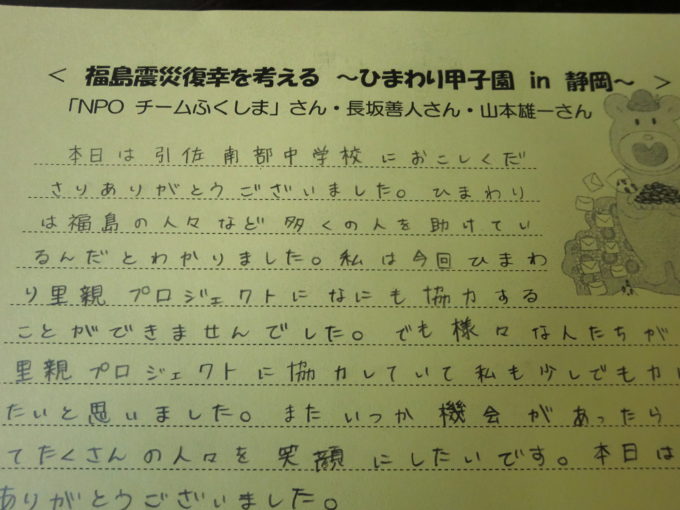 ＜ 福島震災復幸を考える ～ひまわり甲子園 in 静岡～ ＞
「NPO チームふくしま」さん・長坂善人さん・山本雄一さん
本日は引佐南部中学校におこしくだ
さりありがとうございました。ひまわり
は福島の人々など多くの人を助けてい
るんだとわかりました。私は今回ひまわ
り里親プロジェクトになにも協力する
ことができませんでした。でも様々な人たちが
里親プロジェクトに協力していて私も少しでも力に
たいと思いました。またいつか機会があったら
てたくさんの人々を笑顔にしたいです。本日は
ありがとうございました。